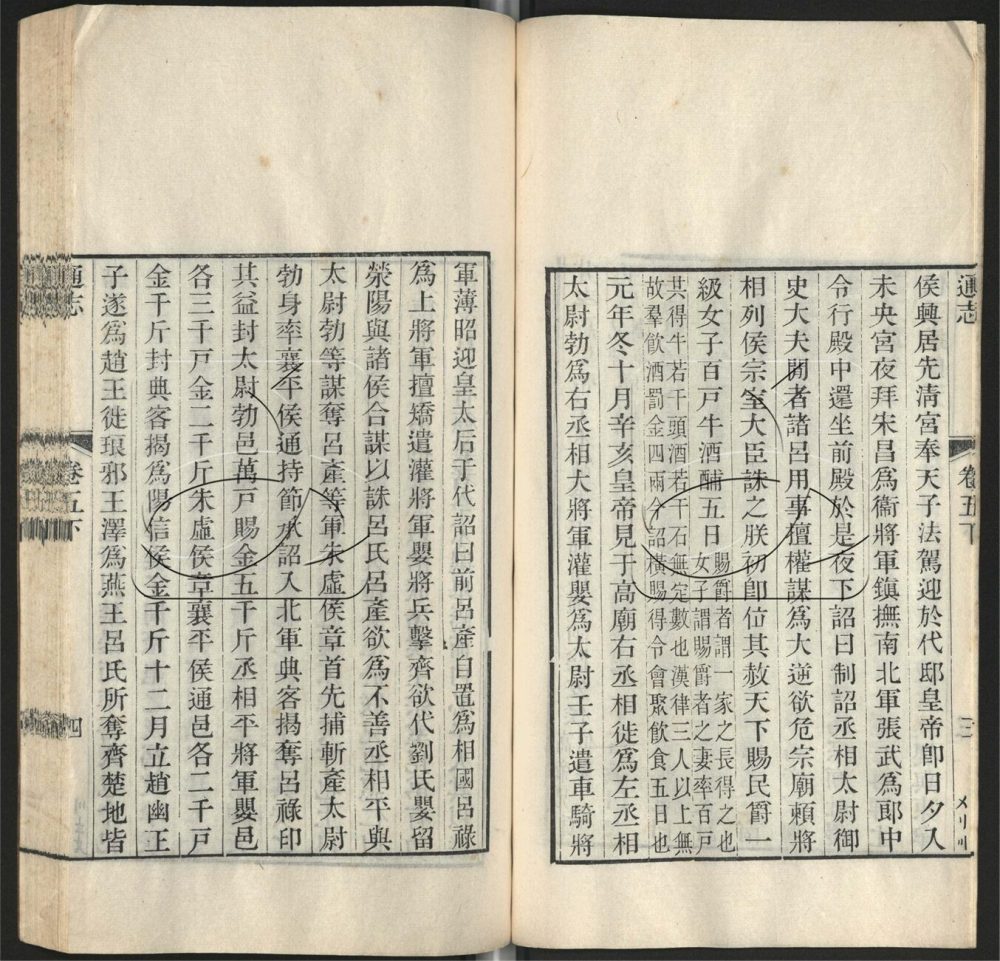 通志
卷五下
三
侯興居先淸宮奉天子法駕迎於代邸皇帝卽日夕入
未央宮夜拜宋昌爲衞將軍鎭撫南北軍張武爲郎中
令行殿中還坐前殿於是夜下詔曰制詔丞相太尉御
史大夫閒者諸呂用事擅權謀爲大逆欲危宗廟賴將
相列侯宗室大臣誅之朕初卽位其赦天下賜民爵一
級女子百戸牛酒酺五日
賜爵者謂一家之長得之也
女子謂賜爵者之妻率百戸
其得牛若干頭酒若干石無定數也漢律三人以上無
故羣飮酒罰金四兩今詔橫賜得令會聚飮食五日也
元年冬十月辛亥皇帝見于高廟右丞相徙爲左丞相
太尉勃爲右丞相大將軍灌嬰爲太尉壬子遣車騎將
軍薄昭迎皇太后于代詔曰前呂產自置爲相國呂祿
爲上將軍擅矯遣灌將軍嬰將兵擊齊欲代劉氏嬰留
滎陽與諸侯合謀以誅呂氏呂產欲爲不善丞相平與
太尉勃等謀奪呂產等軍朱虛侯章首先捕斬產太尉
勃身率襄平侯通持節承詔入北軍典客揭奪呂祿印
其益封太尉勃邑萬戸賜金五千斤丞相平將軍嬰邑
各三千戸金二千斤朱虛侯章襄平侯通邑各二千戸
金千斤封典客揭爲陽信侯金千斤十二月立趙幽王
子遂爲趙王徙琅邪王澤爲燕王呂氏所奪齊楚地皆
通志
卷五下
四